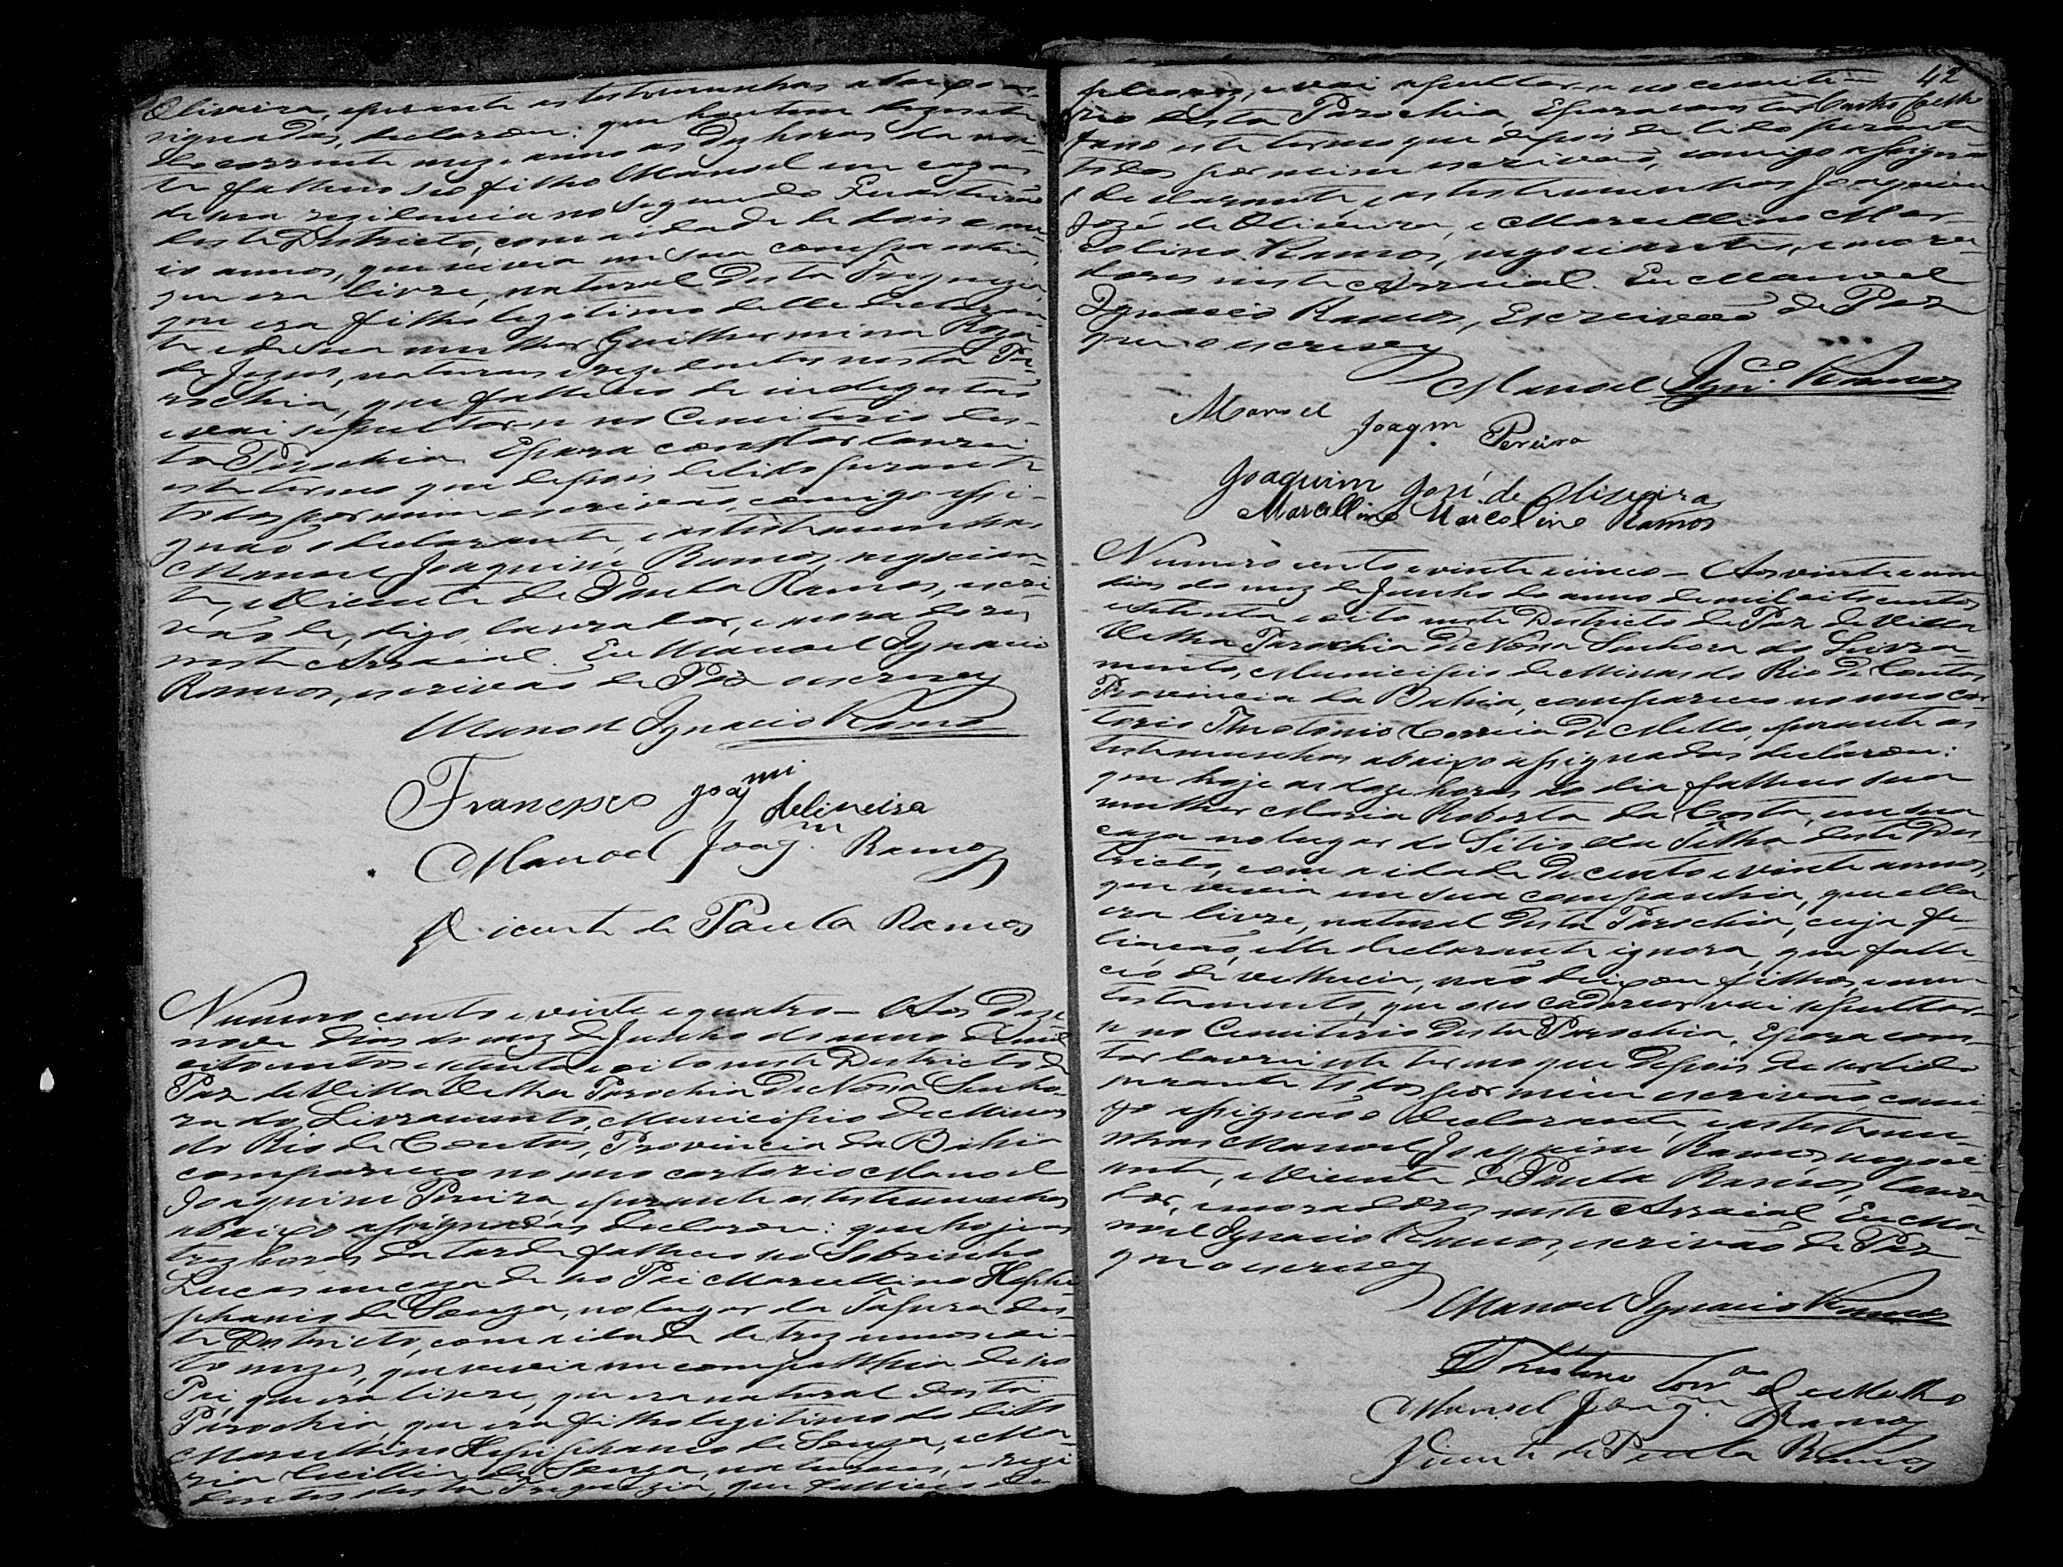 Oliveira, e perante as testemunhas abaixo as-
signadas, declarou: que hontem dezoito
do corrente mez e anno as dez horas da noi-
te falleceo seo filho Manoel em caza
de sua rezidencia no segundo Quarteirão
deste Districto, com a idade de dois e me-
io annos, que vivia em sua companhia,
que era livre, natural desta Freguezia,
que era filho legitimo delle declaran-
te e de sua mulher Guilhermina Roza
de Jezus, naturaes e rezidentes nesta Pa-
rochia, que falleceo de indegestão
e vai sepultar-se no Cemiterio des-
ta Parochia. E para constar lavrei
este termo que depois de lido perante
todos por mim escrivão, comigo assi-
gnão o declarante, e as testemunhas
Manoel Joaquim Ramos, negocian-
te, e Vicente de Paula Ramos, escri-
vão de, digo, lavrador, e moradores
neste Arraial. Eu Manoel Ignacio
Ramos, escrivão de Paz o escrevy
Manoel Ignacio Ramos
Francisco Joaqm Oliveira
Manoel Joaqm. Ramos
Vicente de Paula Ramos
Numero cento e vinte e quatro – Aos deze
nove dias do mez de Junho do anno de mil
oito centos e setenta e oito neste Districto de
Paz de Villa Velha Parochia de Nossa Senho-
ra do Livramento, Municipio de Minas
do Rio de Contas, Provincia da Bahia
compareceo no meo cartorio Manoel
Joaquim Pereira, e perante as testemunhas
abaixo assignadas declarou: que hoje as
trez horas da tarde falleceo seo Sobrinho
Lucas em caza de seo Pai Marcellino
phanio de Souza, no lugar da Tapera des-
te Districto, com a idade de trez annos e oi-
to mezes, que vivia em companhia de seo
Pai, que era livre, que era natural desta
Parochia, que era filho legitimo do dito
Marcellino de Souza, e Ma-
ria de Souza, naturaes, e rezi
dentes desta Freguezia, que falleceo de
42
e vai sepultar-se no cemite-
rio desta Parochia. E para constar
faço este termo que depois de lido perante
todos por mim escrivão, comigo assignão
o declarante, e as testemunhas Joaquim
José de Oliveira, e Marcellino Mar-
colino Ramos, negociantes, e mora-
dores neste Arraial. Eu Manoel
Ignacio Ramos, Escrivão de Paz
que o escrevy
Manoel Ignco. Ramos
Manoel Joaqm. Pereira
Joaquim José de Oliveira
Marcellino Marcolino Ramos
Numero cento e vinte e cinco – Aos vinte e um
dias do mez de Junho do anno de mil oito centos
e setenta e oito neste Districto de Paz de Villa
Velha Parochia de Nossa Senhora do Livra
mento, Municipio de Minas do Rio de Contas
Provincia da Bahia, compareceo no meo car
torio Theotonio Correia de Mello, e perante as
testemunhas abaixo assignadas declarou:
que hoje as doze horas do dia falleceo sua
mulher Maria Roberta da Costa, em sua
caza no lugar do Sitio da deste Dis
tricto, com a idade de cento e vinte annos,
que vivia em sua companhia, que ella
era livre, natural desta Parochia, cuja fi-
liação, elle declarante ignora, que falle-
céo de velhecia, não deixou filhos, e nem
testamento, que o seo cadaver vai sepultar-
se no Cemiterio desta Parochia. E para cons-
tar lavrei este termo que depois de ser lido
perante todos por mim escrivão, comi-
go assignão o declarante, e as testemu-
nhas Manoel Joaquim Ramos, negoci-
ante, e Vicente de Paula Ramos, lavra-
dor, e moradores neste Arraial. Eu Ma-
noel Ignacio Ramos, escrivão de Paz
que o escrevy
Manoel Ignacio Ramos
Corra de Mello
Manoel Joaqm. Ramos
Vicente de Paula Ramos